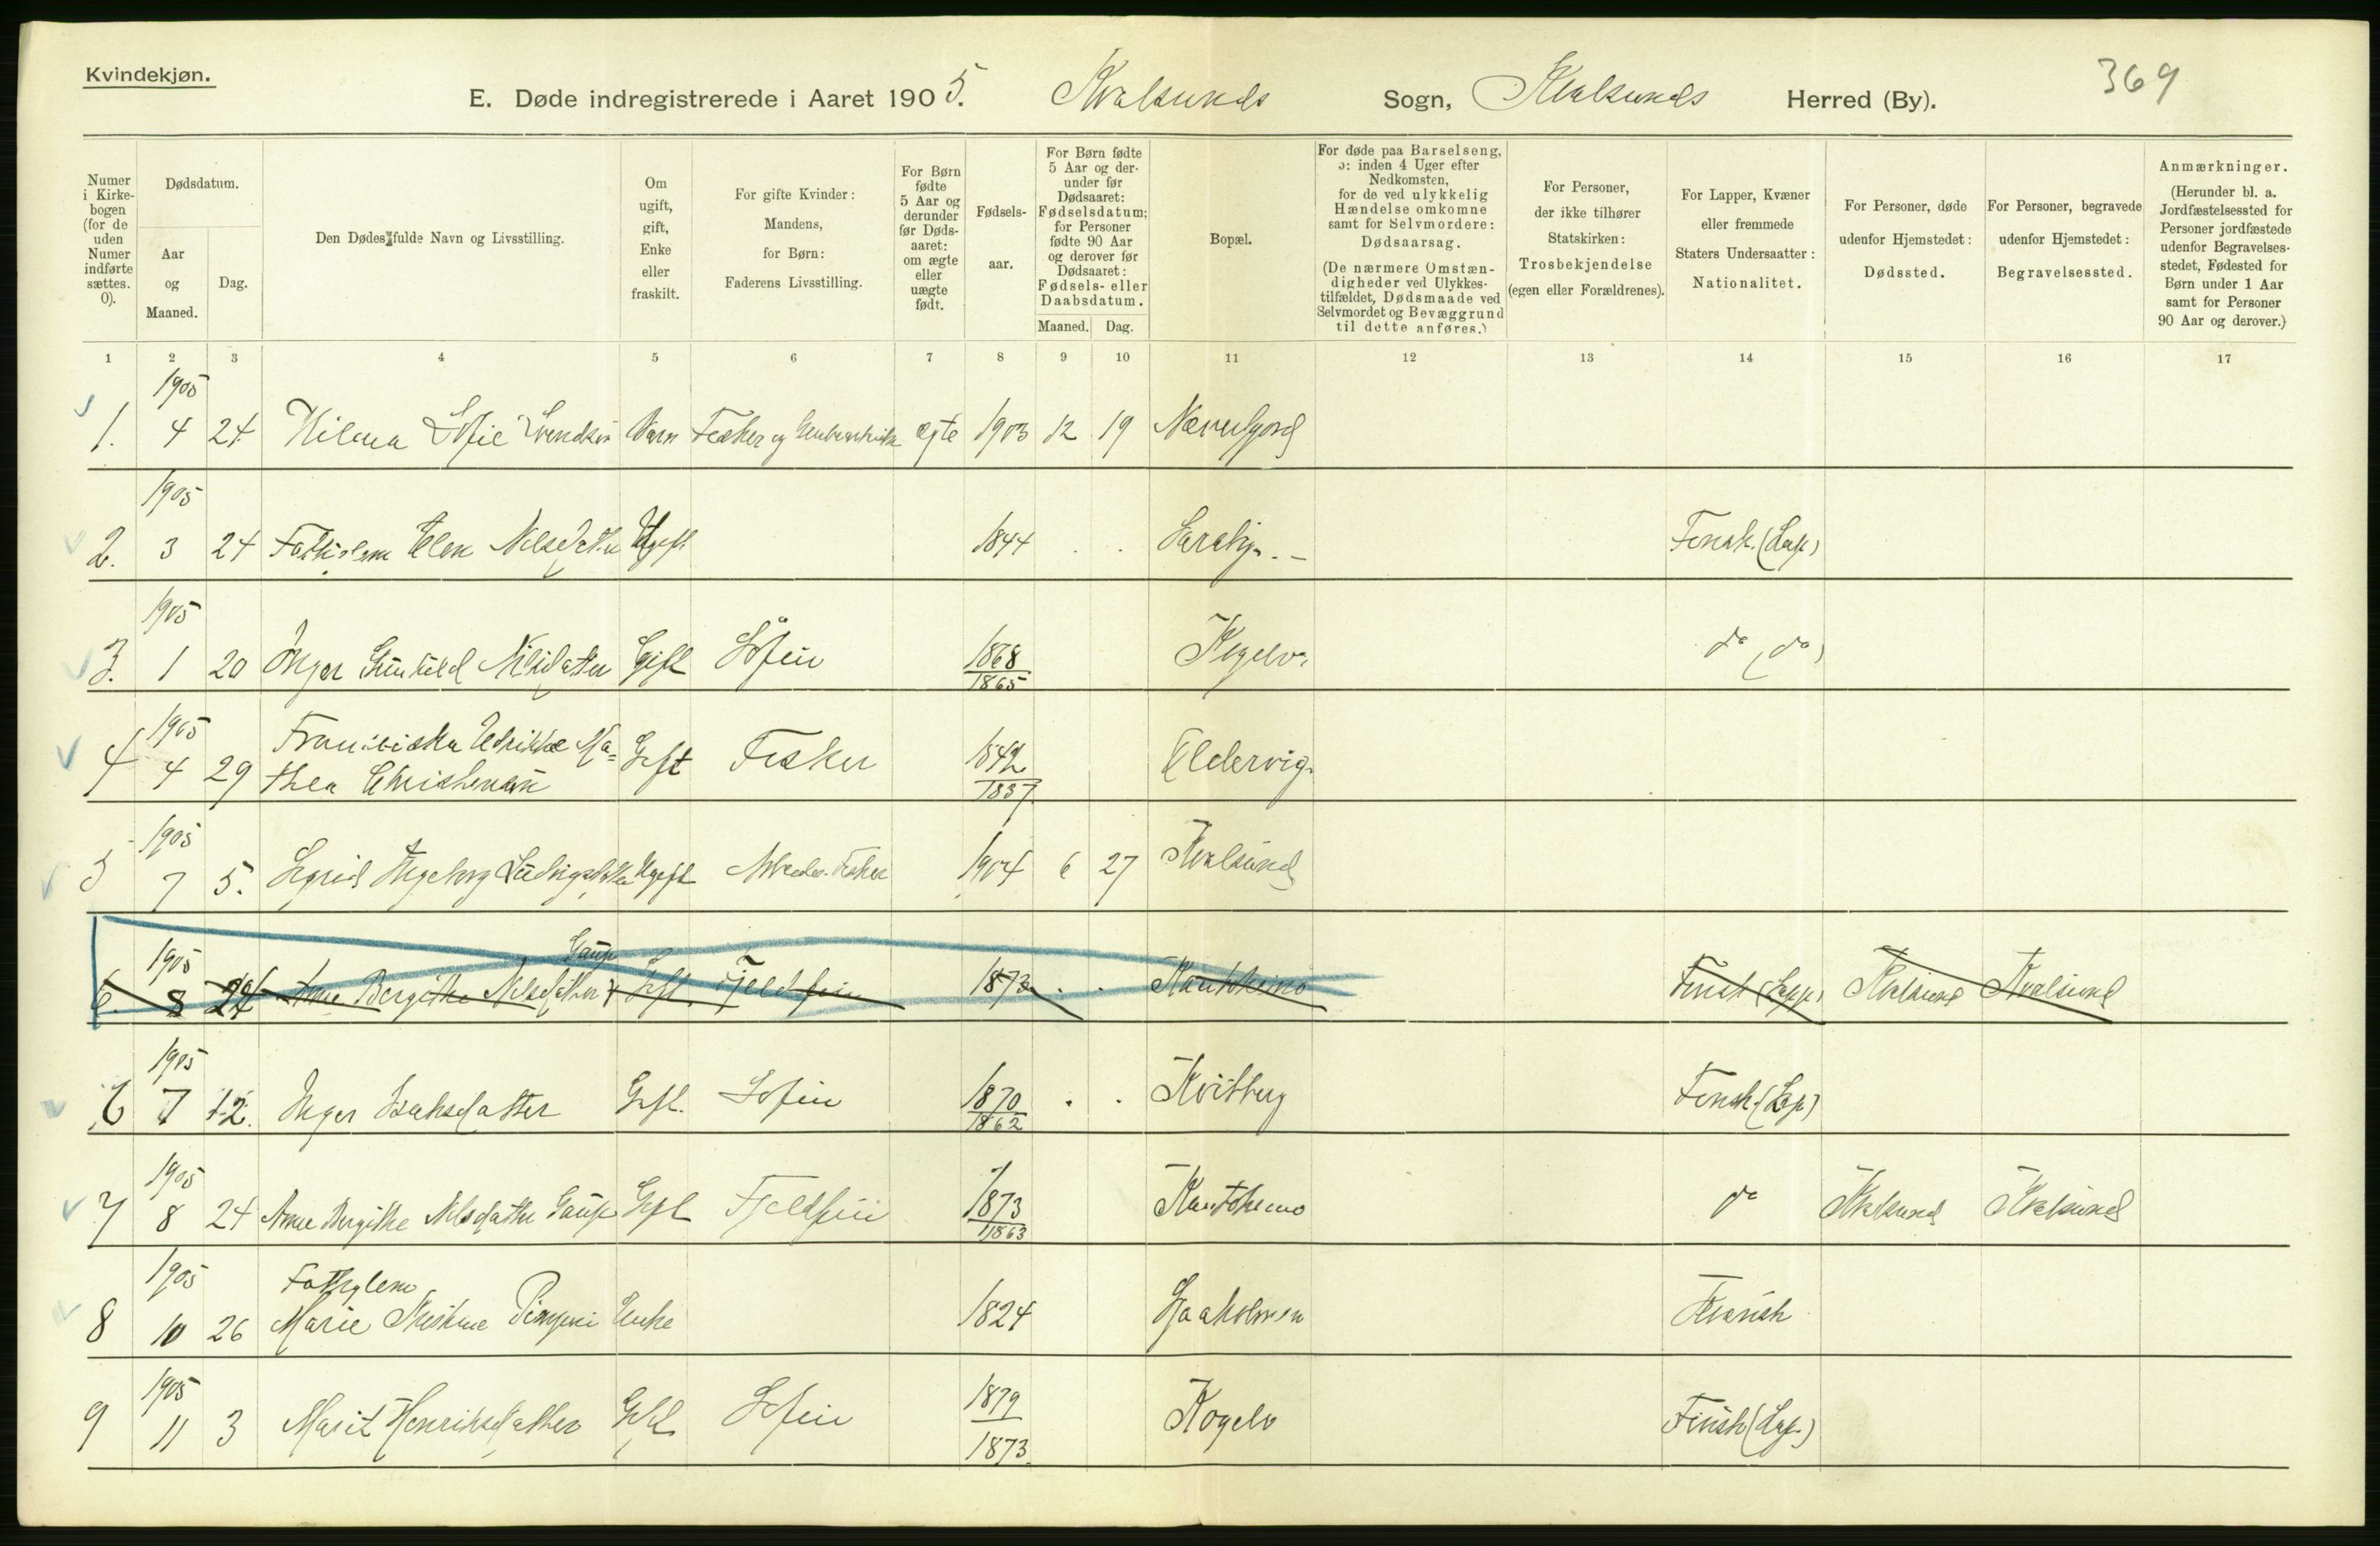 Kvindekjøn.
E. Døde indregistrerede i Aaret 1905. Kvalsunds Sogn, Kvalsunds Herred (By).
369
Numer i Kirkebogen (for de uden Numer indførte sættes. 0).
Dødsdatum.
Aar og Maaned.
Dag.
Den Dødes fulde Navn og Livsstilling.
Om ugift, gift, Enke eller fraskilt.
For gifte Kvinder: Mandens, for Børn: Faderens Livsstilling.
For Børn fødte 5 Aar og derunder før Døds-aaret: om ægte eller uægte født.
Fødsels-aar.
For Børn fødte 5 Aar og der-under før Dødsaaret: Fødselsdatum; for Personer fødte 90 Aar og derover før Dødsaaret: Fødsels- eller Daabsdatum.
Maaned. Dag.
Bopæl.
For døde paa Barselseng, ɔ: inden 4 Uger efter Nedkomsten, for de ved ulykkelig Hændelse omkomne samt for Selvmordere: Dødsaarsag.
(De nærmere Omstæn-digheder ved Ulykkes-tilfældet, Dødsmaade ved Selvmordet og Bevæggrund til dette anføres.)
For Personer, der ikke tilhører Statskirken: Trosbekjendelse (egen eller Forældrenes).
For Lapper, Kvæner eller fremmede Staters Undersaatter: Nationalitet.
For Personer, døde udenfor Hjemstedet: Dødssted.
For Personer, begravede udenfor Hjemstedet: Begravelsessted.
Anmærkninger.
(Herunder bl. a. Jordfæstelsessted for Personer jordfæstede udenfor Begravelses-stedet, Fødested for Børn under 1 Aar samt for Personer 90 Aar og derover.)
1 2 3 4 5 6 7 8 9 10 11 12 13 14 15 16 17
1905
1. 4 24 Hilma Sofie Svendsen Barn Fisker og ægte 1903 12 19 Næverfjord
1905
2. 3 24 Fattiglem Elen Nilsdatter Ugift 1844 . . Finsk. (Lap)
1905
3. 1 20 Inger Gunhild Nilsdatter Gift Søfin 1868 do (do)
1865
1905
4 4 29 Franciska Udrikke Ma= Gift Fisker 1842 Eldervig.
thea Christensen 1837
1905
5 7 5. Sigrid Ingeborg Ludvigsdatter Ugift Fisker 1904 6 27 Kvalsund
1905 Gaup
6. 8 24 Anne Bergithe Nilsdatter Gift. Fjeldfin 1873 . . Kautokeino Finsk (Lapp) Kvalsund Kvalsund
1905
6 7 12. Inger Isaksdatter Gift. Søfin 1870 . . Kvitberg Finsk. (Lap)
1862
1905
7 8 24 Anne Bergithe Nilsdatter Gaup Gift Fjeldfin 1873 Kautokeino do Kvalsund Kvalsund
1863
1905 Fattiglem
8 10 26 Marie Kristine Enke 1824
1905
9 11 3 Marit Henriksdatter Gift Søfin 1879 Finsk (Lap.)
1873.